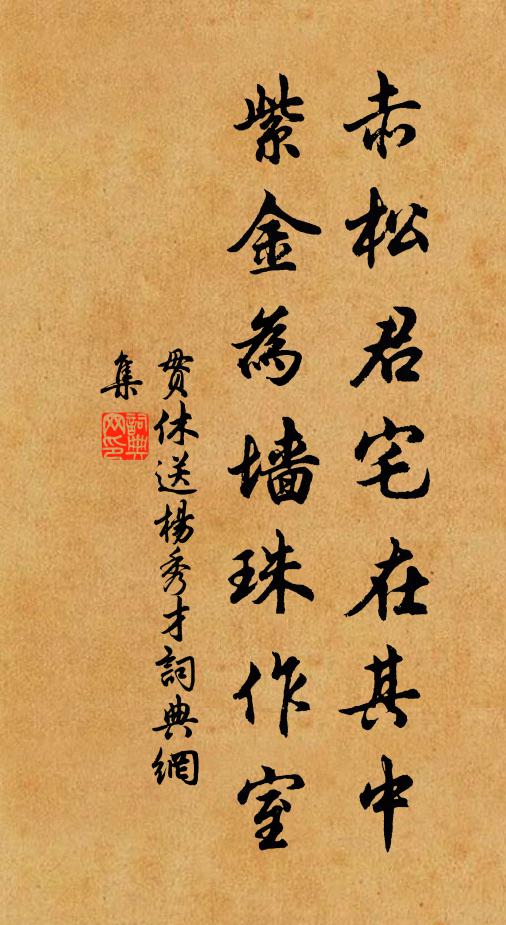 赤松君宅在其中
紫金為墙珠作室
贯休送楊秀才詞典網
集
詞典
网印